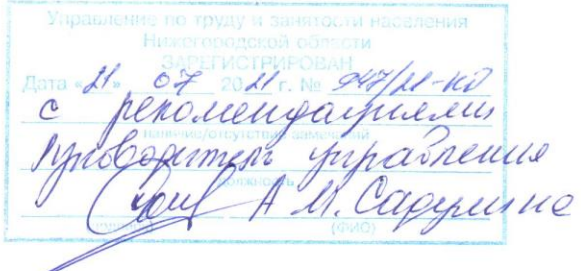 Управление по труду и занятости населения
Нижегородской области
ЗАРЕГИСТРИРОВАН
Дата «21» 07 2021 г. № 947/21-КД
с рекомендациями
наличие/отсутствие замечаний
руководитель управления
должность
А.М. Садулина
(подпись) (ФИО)